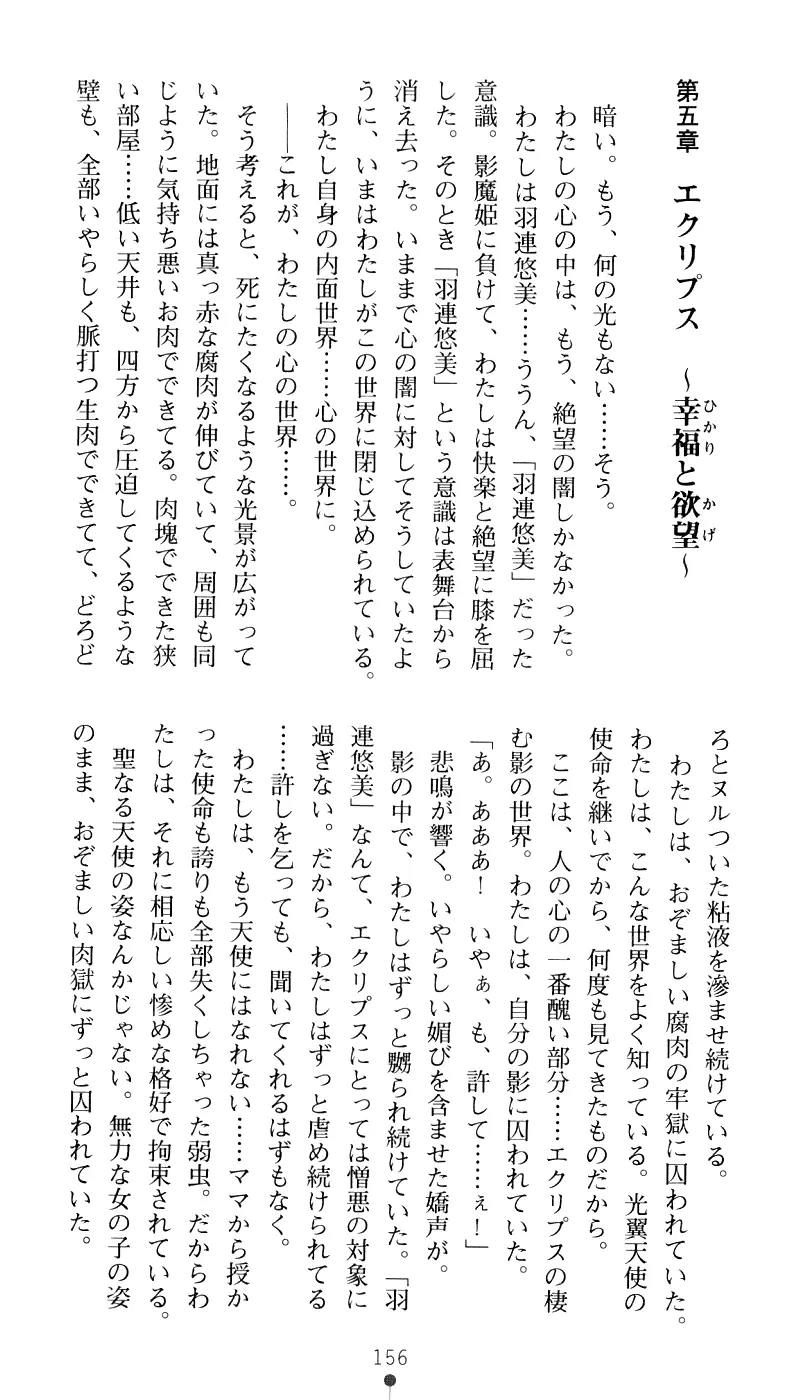 第五章　エクリプス　～幸福と欲望～
ひかり　かげ
暗い。もう、何の光もない……そう。
わたしの心の中は、もう、絶望の闇しかなかった。
わたしは羽連悠美……ううん、「羽連悠美」だった
意識。影魔姫に負けて、わたしは快楽と絶望に膝を屈
した。そのとき「羽連悠美」という意識は表舞台から
消え去った。いままで心の闇に対してそうしていたよ
うに、いまはわたしがこの世界に閉じ込められている。
わたし自身の内面世界……心の世界に。
――これが、わたしの心の世界……。
そう考えると、死にたくなるような光景が広がって
いた。地面には真っ赤な腐肉が伸びていて、周囲も同
じように気持ち悪いお肉でできてる。肉塊でできた狭
い部屋……低い天井も、四方から圧迫してくるような
壁も、全部いやらしく脈打つ生肉でできてて、どろど
ろとヌルついた粘液を滲ませ続けている。
わたしは、おぞましい腐肉の牢獄に囚われていた。
わたしは、こんな世界をよく知っている。光翼天使の
使命を継いでから、何度も見てきたものだから。
ここは、人の心の一番醜い部分……エクリプスの棲
む影の世界。わたしは、自分の影に囚われていた。
「あ。あああ！　いやぁ、も、許して……ぇ！」
悲鳴が響く。いやらしい媚びを含ませた嬌声が。
影の中で、わたしはずっと嬲られ続けていた。「羽
連悠美」なんて、エクリプスにとっては憎悪の対象に
過ぎない。だから、わたしはずっと虐め続けられてる
……許しを乞っても、聞いてくれるはずもなく。
わたしは、もう天使にはなれない……ママから授か
った使命も誇りも全部失くしちゃった弱虫。だからわ
たしは、それに相応しい惨めな格好で拘束されている。
聖なる天使の姿なんかじゃない。無力な女の子の姿
のまま、おぞましい肉獄にずっと囚われていた。
156